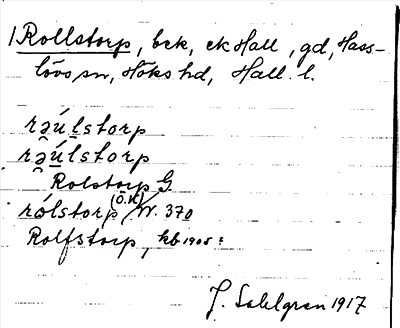 Rollstorp, bck, ek Hall, gd, Hass-
lövs sn, Höks hd, Hall. l.
rəú̯lstorp
rə̯úlstorp
Rolstorp G
rólstorp (Ö.K) W. 370
Rolfstorp, kb 1905:
J. Sahlgren 1917